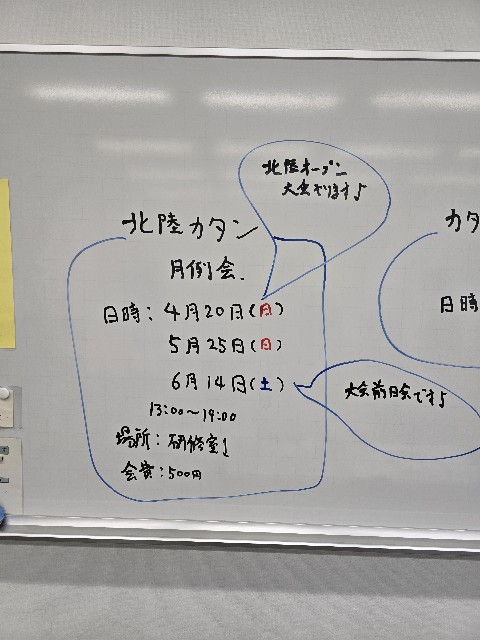 北陸オープン
大会やります♪
北陸カタン
月例会.
日時:4月20日(日)
5月25日(日)
6月14日(土)
13:00〜19:00
場所:研修室1
会費:500円
大会前日会です♪
カタ
日時